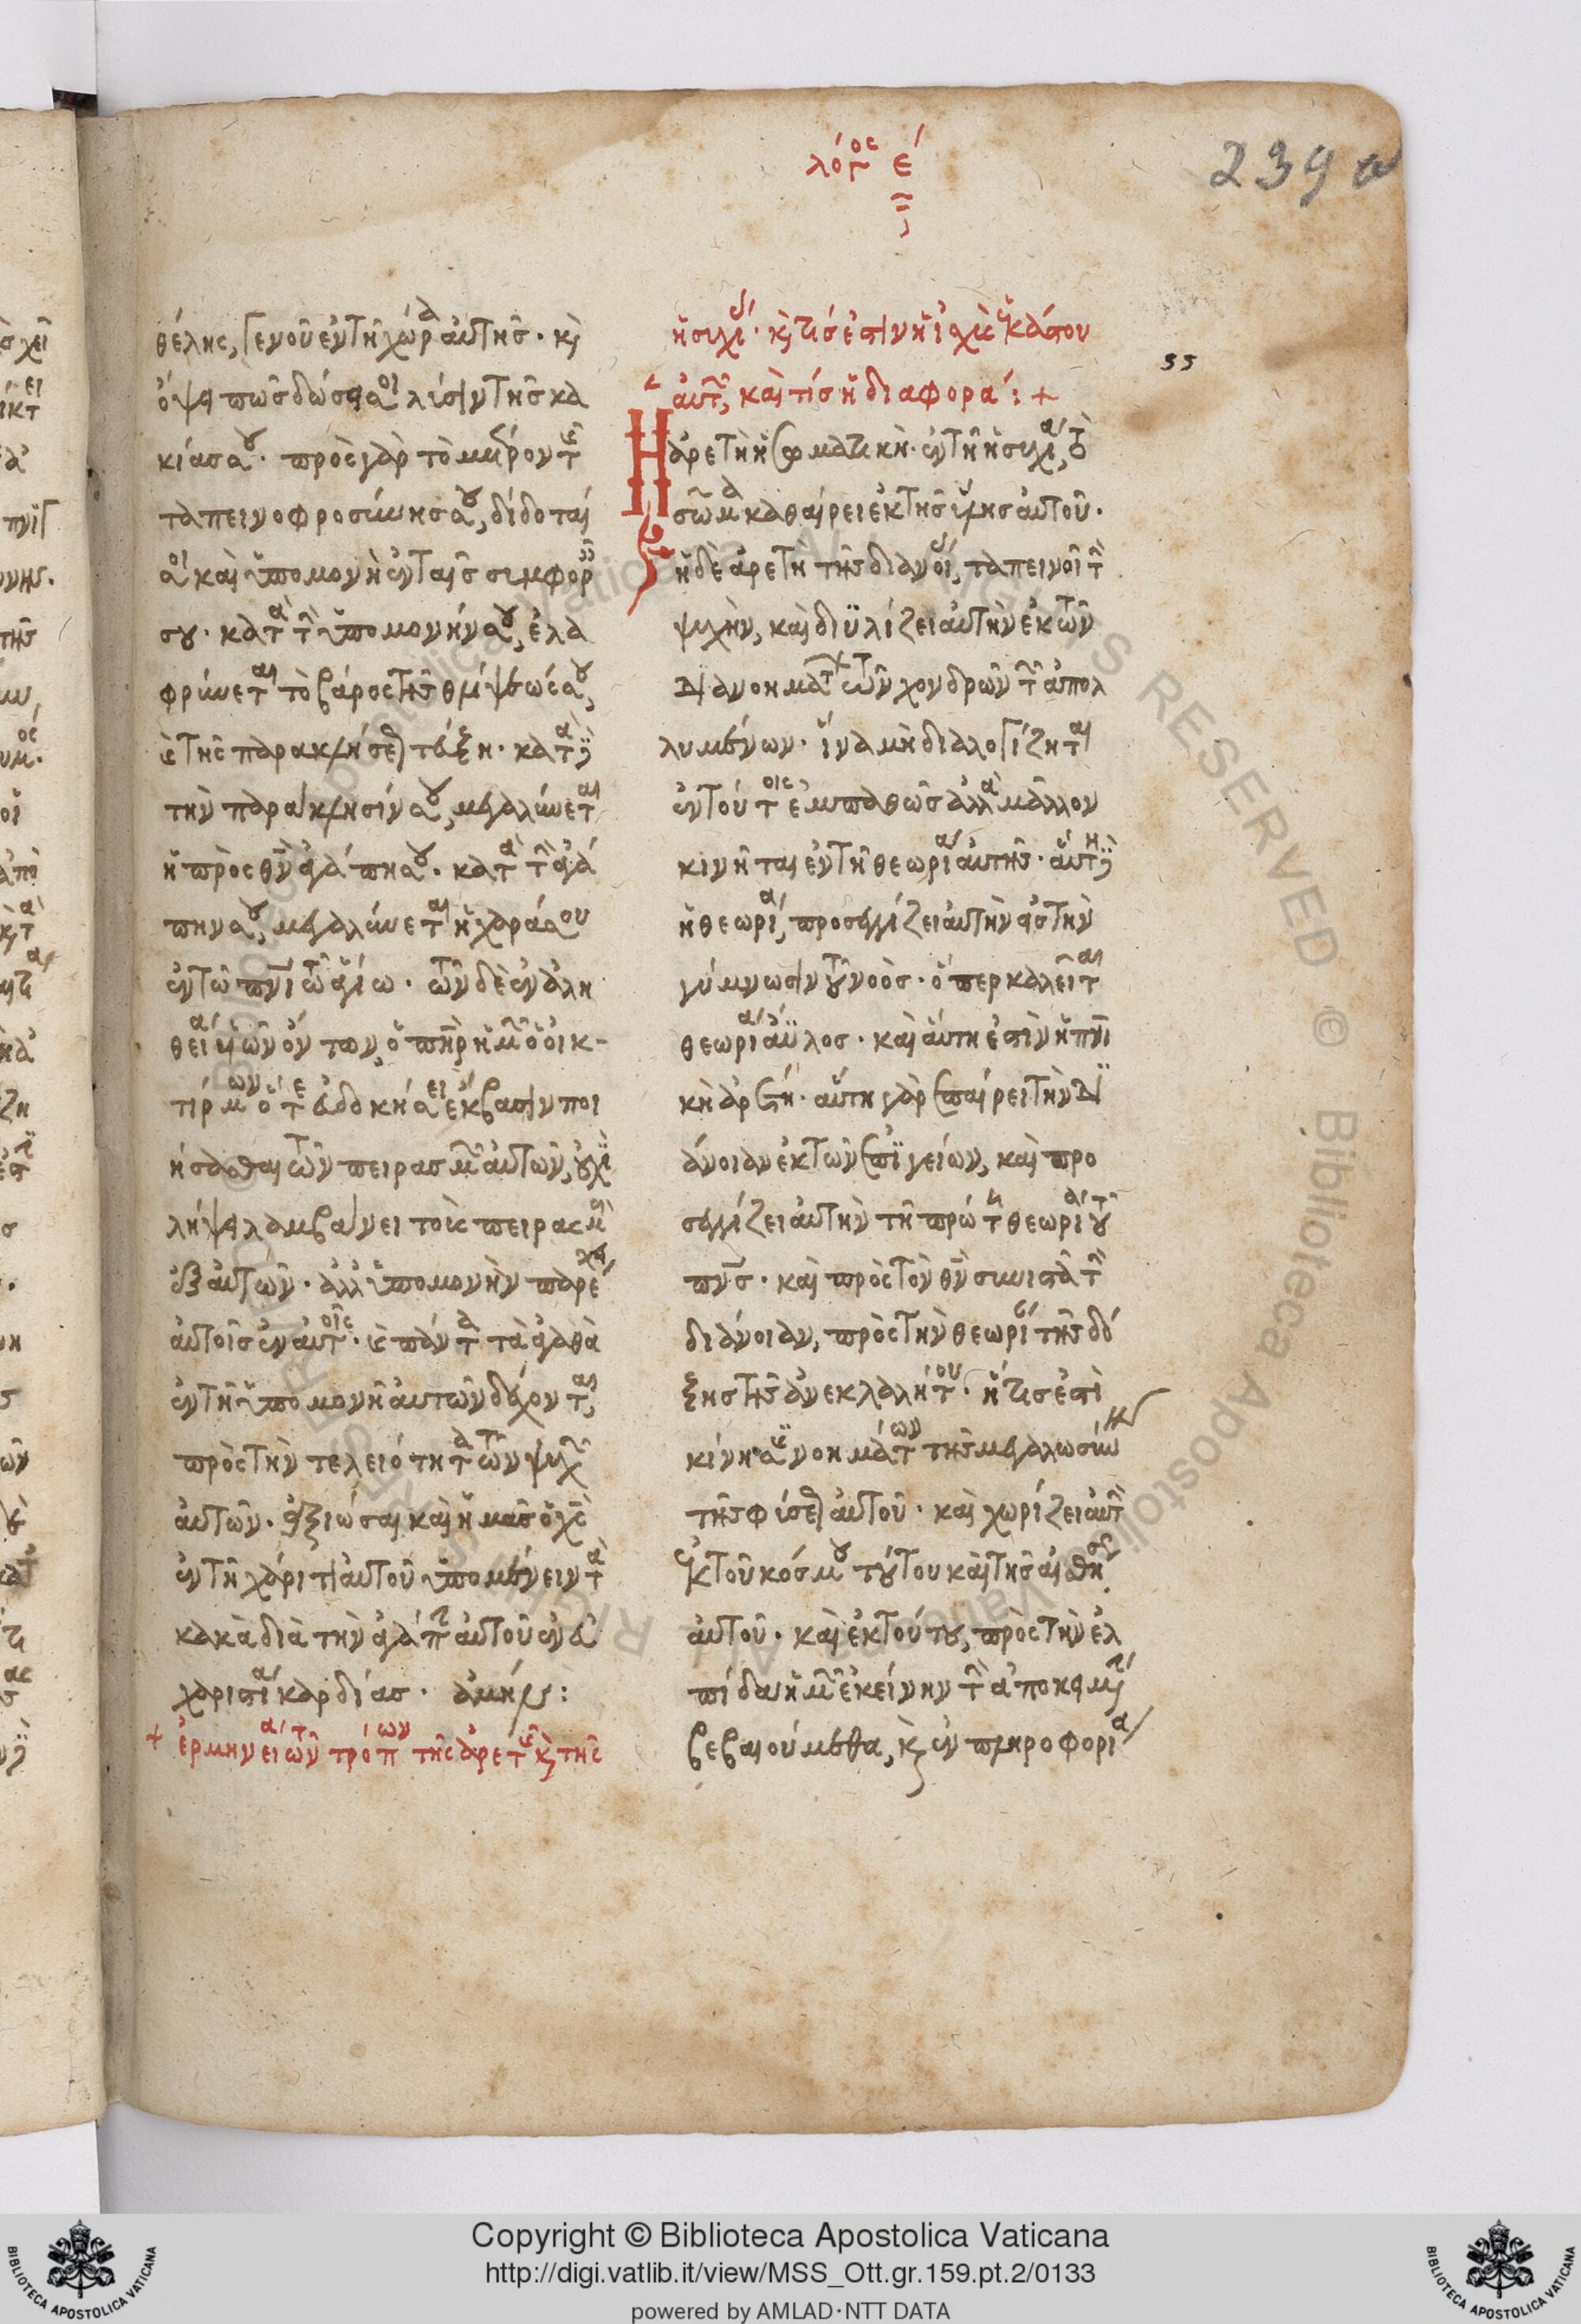 λόγος ε΄
239α
33
θέλης, γενοῦ ἐν τῇ χώρα αὐτῆς· κ
ὄψει πῶς δώσει σοι λύσιν τῆς κα
κίας σου. πρὸς γὰρ τὸ μέτρον τῆς
ταπεινοφροσύνης σου, δίδοταί
σοι καὶ ὑπομονὴ ἐν ταῖς συμφοραῖς
σου. κατὰ τὴν ὑπομονήν σου, ἐλα
φρύνεται τὸ βάρος τῆς θλίψεώς σου,
κ τῆς παρακλήσεως τεύξη. κατὰ δὲ
τὴν παράκλησίν σου, μεγαλύνεται
ἡ πρὸς θν ἀγάπη σου. κατὰ τὴν ἀγά
πην σου, μεγαλύνεται ἡ χαρά σου
ἐν τῶ πνι τῶ ἁγίω. τῶν δὲ ἐν ἀλη
θεία υἱῶν ὄντων, ὁ πηρ ἡμῶν ὁ οἰκ-
τίρμων ὅτε εὐδοκήσει ἔκβασιν ποι
ήσασθαι τῶν πειρασμῶν αὐτῶν, οὐχὶ
λῆψιν λαμβάνει τοὺς πειρασμοὺς
ἐξ αὐτῶν. ἀλλ ὑπομονὴν παρέχει
αὐτοῖς ἐν αὐτοῖς. κ πάντα τὰ ἀγαθὰ
ἐν τῇ ὑπομονῇ αὐτῶν δέχονται,
πρὸς τὴν τελειότητα τῶν ψυχῶν
αὐτῶν. ἀξιώσαι καὶ ἡμᾶς ὁ χς
ἐν τῇ χάριτι αὐτοῦ ὑπομένειν τὰ
κακὰ διὰ τὴν ἀγάπην αὐτοῦ ἐν εὐ
χαριστία καρδίας. ἀμήν:
+ ἑρμηνεία τῶν τρόπων τῆς ἀρετῆς κ τῆς
ἡσυχίας. κ τίς ἐστιν ἡ ἰσχὺς ἑκάστου
αὐτῶν, καὶ τίς ἡ διαφορά: +
Η ἀρετὴ ἡ σωματικὴ ἐν τῇ ἡσυχία, τὸ
σῶμα καθαίρει ἐκ τῆς ὕλης αὐτοῦ.
ἡ δὲ ἀρετὴ τῆς διανοίας, ταπεινοῖ τὴν
ψυχὴν, καὶ διϋλίζει αὐτὴν ἐκ τῶν
διανοημάτων τῶν χονδρῶν τῶν ἀπολ
λυμένων. ἵνα μὴ διαλογίζηται
ἐν τούτοις ἐμπαθῶς ἀλλὰ μᾶλλον
κινῆται ἐν τῇ θεωρία αὐτῆς. αὕτη δὲ
ἡ θεωρία, προσεγγίζει αὐτὴν εἰς τὴν
γύμνωσιν τοῦ νοός. ὅπερ καλεῖται
θεωρία ἄϋλος. καὶ αὕτη ἐστὶν ἡ πνι
κὴ ἀρετή. αὕτη γὰρ ἐπαίρει τὴν δι
άνοιαν ἐκ τῶν ἐπιγείων, καὶ προ
σεγγίζει αὐτὴν τῇ πρώτη θεωρία τοῦ
πνς. καὶ πρὸς τὸν θν συνιστᾶ τὴν
διάνοιαν, πρὸς τὴν θεωρίαν τῆς δό
ξης τῆς ἀνεκλαλήτου. ἥτις ἐστὶ
κίνησις νοημάτων τῆς μεγαλωσύνης
τῆς φύσεως αὐτοῦ. καὶ χωρίζει αὐτὴν
ἐκ τοῦ κόσμου τούτου καὶ τῆς αἰσθήσεως
αὐτοῦ. καὶ ἐκ τούτου, πρὸς τὴν ἐλ
πίδα ἡμῶν ἐκείνην τὴν ἀποκειμένην
βεβαιούμεθα, κ ἐν πληροφορία
Copyright © Biblioteca Apostolica Vaticana
http://digi.vatlib.it/view/MSS_Ott.gr.159.pt.2/0133
powered by AMLAD·NTT DATA
BIBLIOTECA APOSTOLICA VATICANA
BIBLIOTECA APOSTOLICA VATICANA